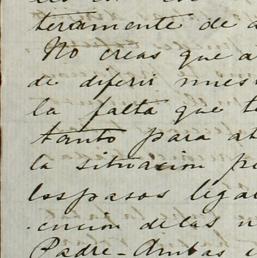 teramente de a
No creas que a
de diferir nues
la falta que t
tanto para ab
la situacion p
los pasos lega
cucion de las n
Padre - Ambas c